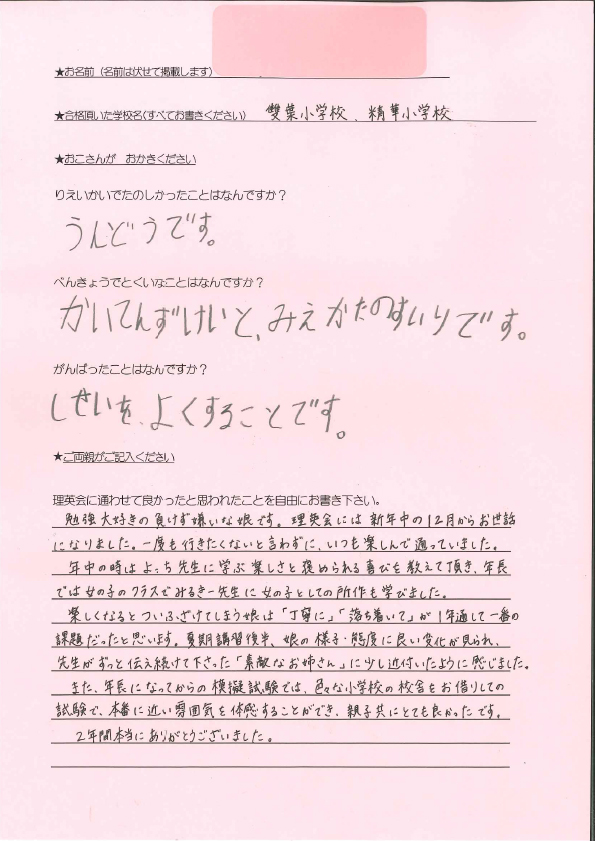 ★お名前（名前は伏せて掲載します）
★合格頂いた学校名（すべてお書きください） 雙葉小学校、精華小学校
★おこさんが おかきください
りえいかいでたのしかったことはなんですか？
うんどうです。
べんきょうでとくいなことはなんですか？
かいてんずけいと、みえかたのすいりです。
がんばったことはなんですか？
しせいを、よくすることです。
★ご両親がご記入ください
理英会に通わせて良かったと思われたことを自由にお書き下さい。
勉強大好きの負けず嫌いな娘です。理英会には新年中の12月からお世話
になりました。一度も行きたくないと言わずに、いつも楽しんで通っていました。
年中の時はよっち先生に学ぶ楽しさと褒められる喜びを教えて頂き、年長
では女の子のクラスでみるきー先生に女の子としての所作も学びました。
楽しくなるとついふざけてしまう娘は「丁寧に」「落ち着いて」が1年通して一番の
課題だったと思います。夏期講習後半、娘の様子・態度に良い変化が見られ、
先生がずっと伝え続けて下さった「素敵なお姉さん」に少し近付いたように感じました。
また、年長になってからの模擬試験では、色々な小学校の校舎をお借りしての
試験で、本番に近い雰囲気を体感することができ、親子共にとても良かったです。
2年間本当にありがとうございました。